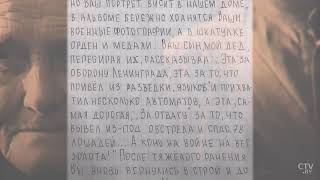 но ваш портрет висит в нашем доме,
в альбоме бережно хранятся ваши
военные фотографии, а в шкатулке
орден и медали. Ваш сын, мой дед,
перебирая их, рассказывал: „Эта за
оборону Ленинграда, эта за то, что
привёл из разведки „языков" и прихва-
тил несколько автоматов, а эта, са-
мая дорогая, „За отвагу", за то, что
вывел из-под обстрела и спас 78
лошадей... А конь на войне на вес
золота!" После тяжёлого ранения
Вы вновь вернулись в строй и до
CTV.BY